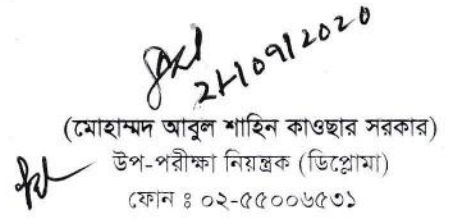 21/09/2020
(মোহাম্মদ আবুল শাহিন কাওছার সরকার)
উপ-পরীক্ষা নিয়ন্ত্রক (ডিপ্লোমা)
ফোন ঃ ০২-৫৫০০৬৫৩১